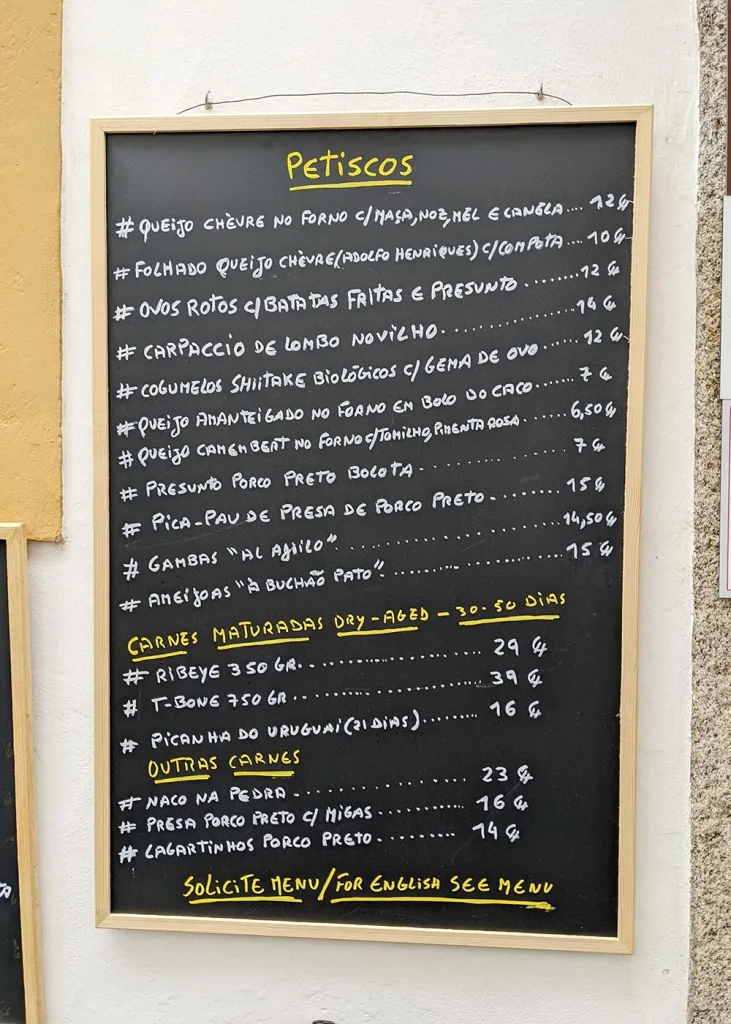 PETISCOS
# QUEIJO CHÈVRE NO FORNO C/MAÇA, NOZ, MEL E CANELA... 12€
# FOLHADO QUEIJO CHÈVRE (ADOLFO HENRIQUES) C/COMPOTA... 10€
# OVOS ROTOS C/BATATAS FRITAS E PRESUNTO....... 12€
# CARPACCIO DE LOMBO NOVILHO................ 14€
# COGUMELOS SHIITAKE BIOLÓGICOS C/GEMA DE OVO...... 12€
# QUEIJO AMANTEIGADO NO FORNO EM BOLO DO CACO...... 7€
# QUEIJO CAMEMBERT NO FORNO C/TOMILHO, PIMENTA ROSA...... 6,50€
# PRESUNTO PORCO PRETO BOLOTA............. 7€
# PICA-PAU DE PRESA DE PORCO PRETO......... 15€
# GAMBAS "AL AJIILO"..................... 14,50€
# AMEIJOAS "À BUCHÃO PATO"................ 15€
CARNES MATURADAS DRY-AGED - 30-50 DIAS
# RIBEYE 350GR..................... 29€
# T-BONE 750GR..................... 39€
# PICANHA DO URUGUAI (21 DIAS)........ 16€
OUTRAS CARNES
# NACO NA PEDRA................... 23€
# PRESA PORCO PRETO C/ MIGAS........... 16€
# LAGARTINHOS PORCO PRETO......... 14€
SOLICITE MENU/FOR ENGLISH SEE MENU